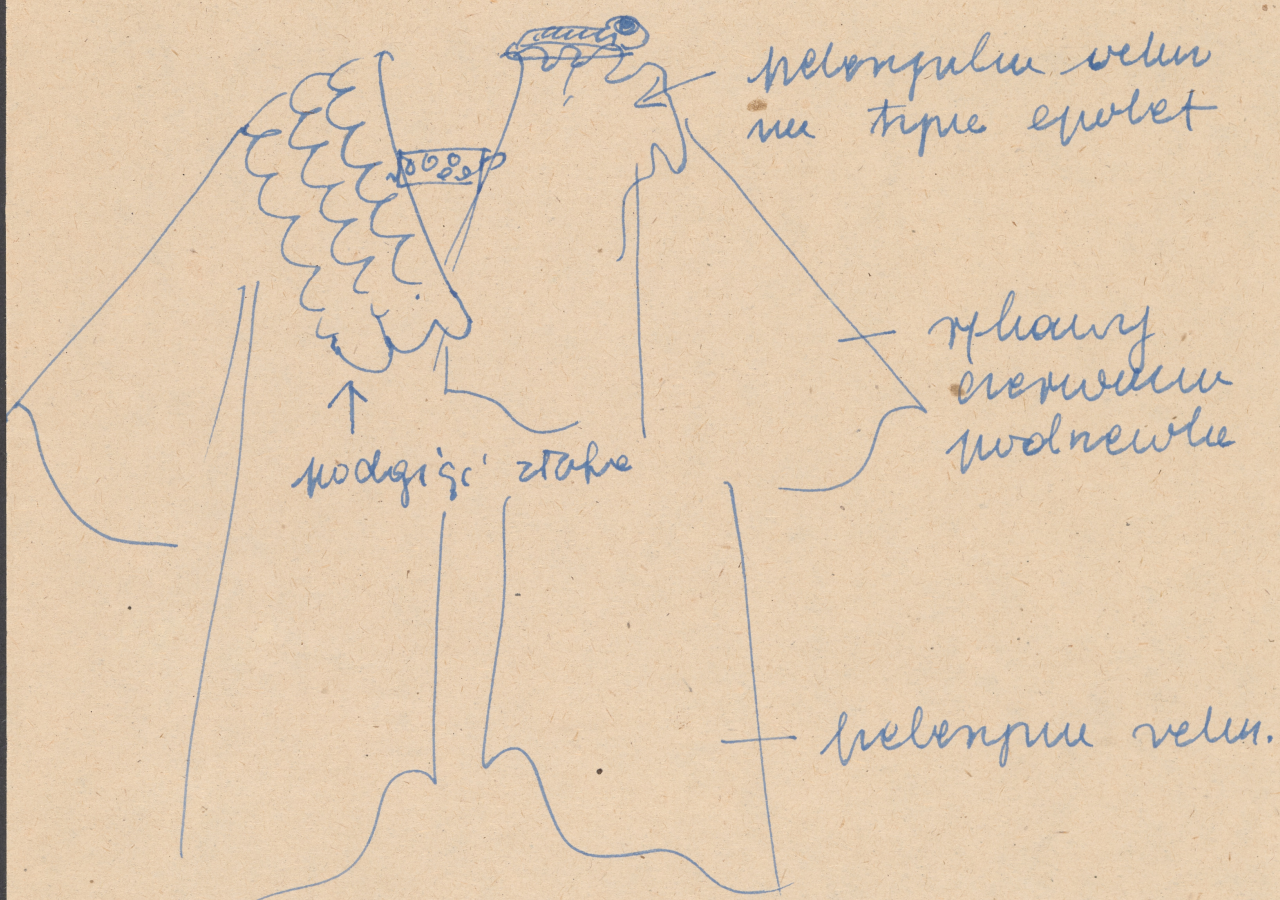 pelerynka welur
na typie epolet
rękawy
czerwona
podszewka
podgiąć
peleryna welur.